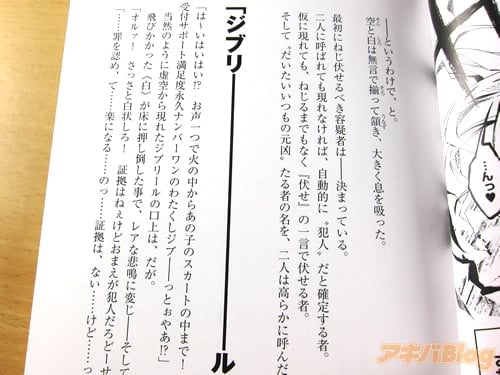 ――というわけで、と。
空と白は無言で揃って頷き、大きく息を吸った。
最初にねじ伏せるべき容疑者は――決まっている。
二人に呼ばれても現れなければ、自動的に〝犯人〟だと確定する者。
仮に現れても、ねじるまでもなく『伏せ』の一言で伏せる者。
そして〝だいたいいつもの元凶〟たる者の名を、二人は高らかに呼んだ
「ジブリ――――――ル
「は～いはいはい!?　お声一つで火の中からあの子のスカートの中まで！
受付サポート満足度永久ナンバーワンのわたくしジブ――っとぉやあ!?」
当然のように虚空から現れたジブリールの口上は、だが。
飛びかかった《白》が床に押し倒した事で、レアな悲鳴に変じ――そして
「オルァ！　さっさと白状しろ！　証拠はねぇけどおまえが犯人だろどーせ
「……罪を認め、て……楽になる……のっ……証拠は、ない……けど……っ
…んっ♥
アキバBlog